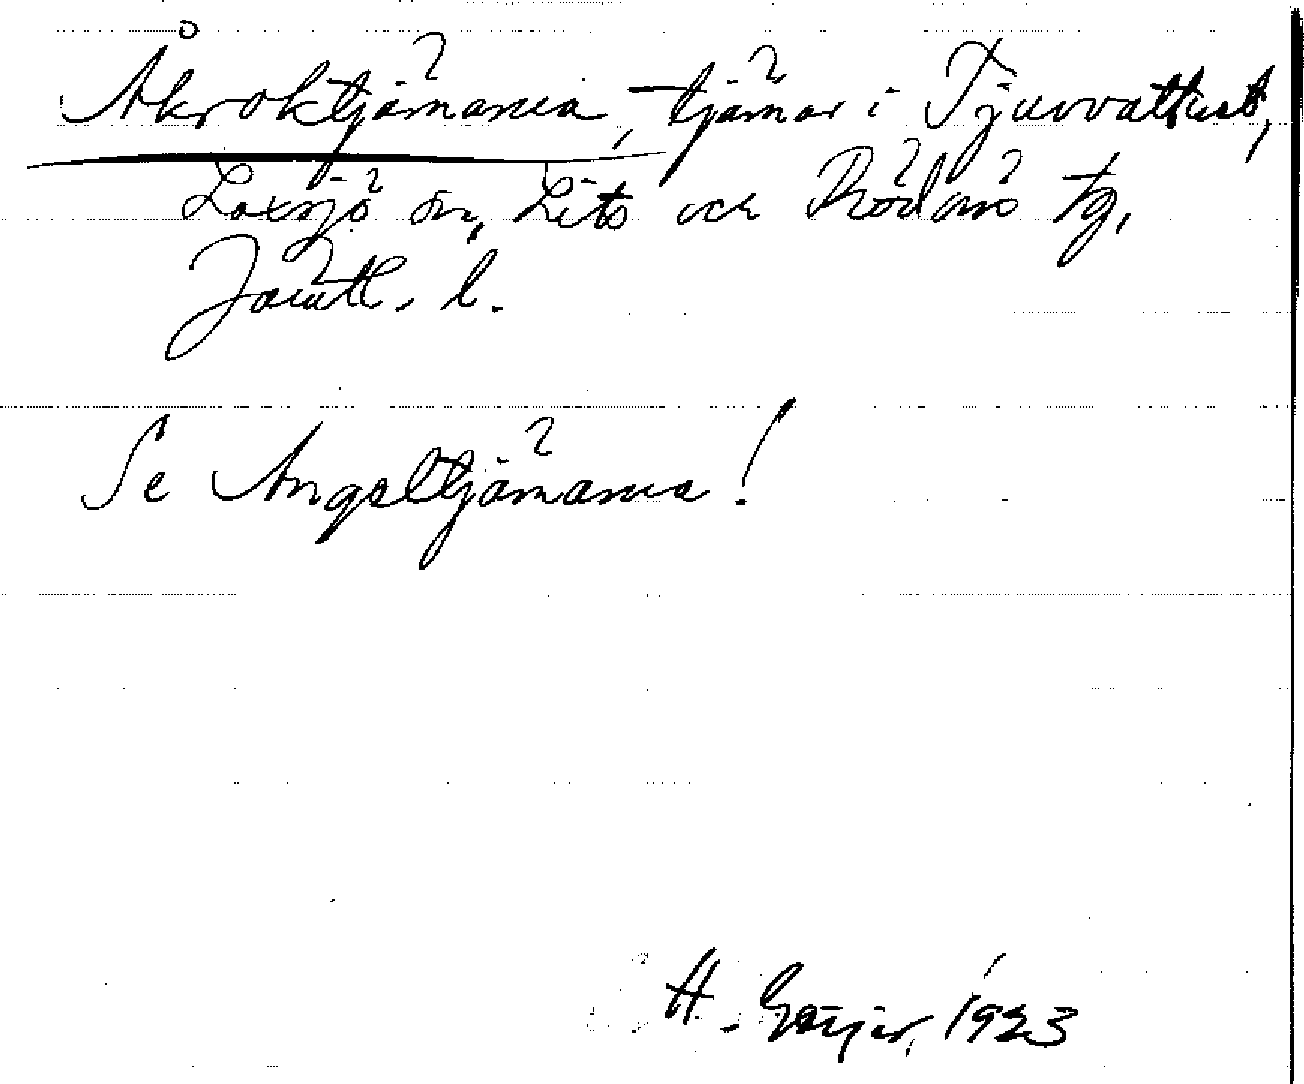 Åkroktjärnarna, tjärnar i Tjuvvattnet,
Laxsjö sn, Lits och Rödöns tg,
Jämtl. l.
Se Angeltjärnarna!
H. Geijer, 1923